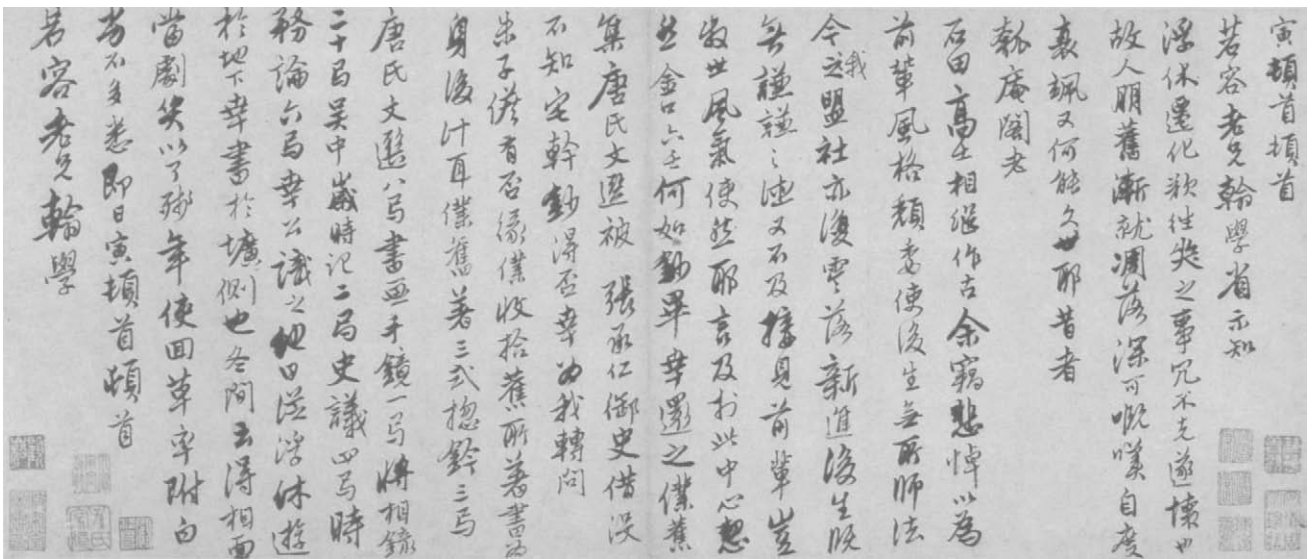 寅頓首頓首
若容老兄翰學省示知
浮休遷化歎往哭之事冗不克遂懷也
故人朋舊漸就凋落深可嘅嘆自度
衰颯又何能久世耶昔者
瓠庵閣老
石田高士相繼作古余竊悲悼以為
前輩風格頹委使後生無所師法
今之我盟社亦復零落新進後生既
無謙謙之德又不及接見前輩豈
衰世風氣使然耶言及於此中心愁
金台六壬何如鈔畢幸還之僕舊
集唐氏文選被張承仁御史借沒
不知宅幹鈔得否幸為我轉問
朱子儋有否緣僕收拾舊所著書為
身後計耳僕舊著三式揔鈐三馬
唐氏文選八馬書畫手鏡一馬將相錄
二十馬吳中歲時記二馬史議四馬時
務論六馬幸公識之他日從浮休遊
於地下幸書於壙側也冬間去得相面
當劇笑以了殘年使回草率附白
若不多悉即日寅頓首頓首
若容老兄翰學